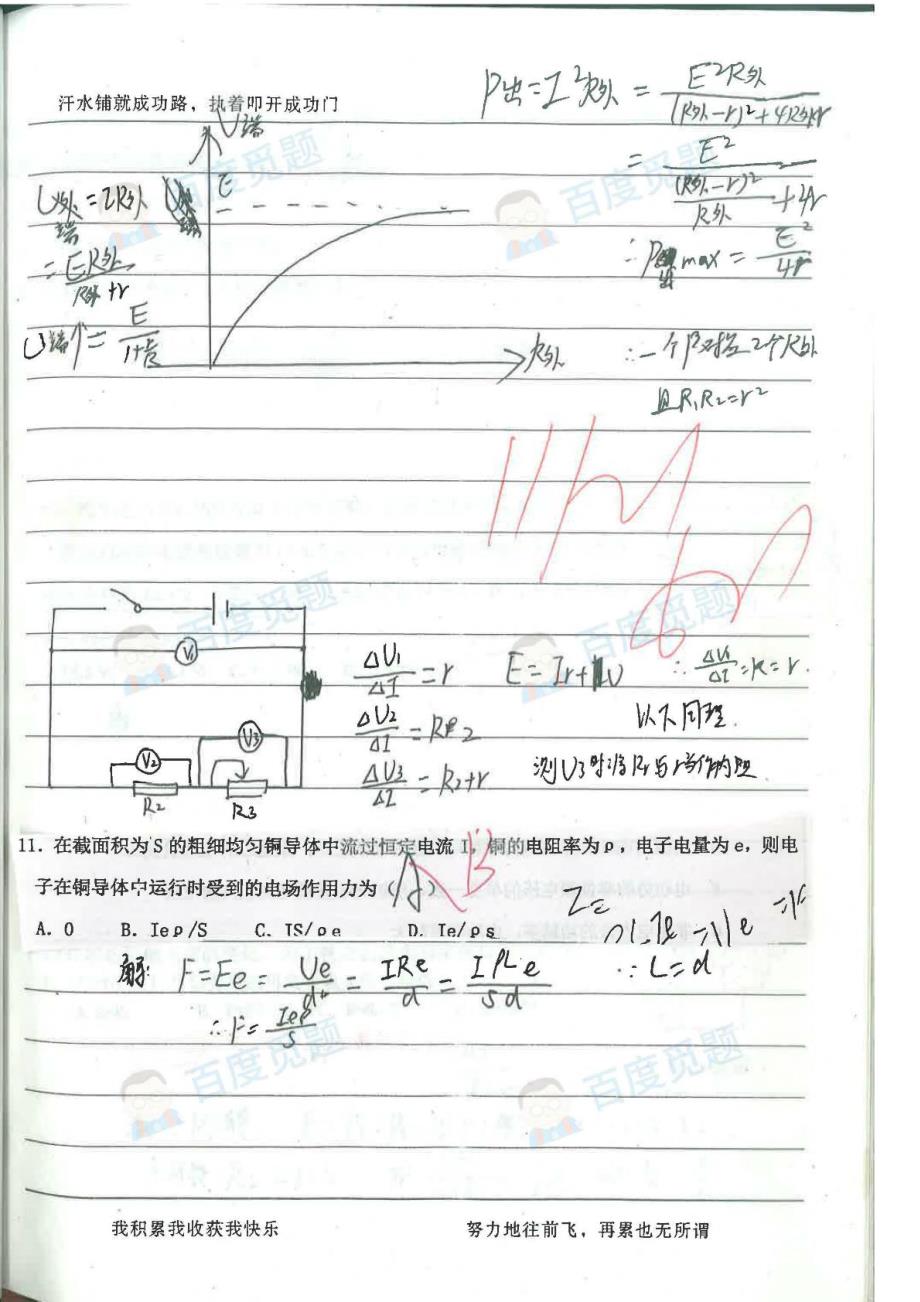 汗水铺就成功路，执着叩开成功门
P出=I²R外 = E²R外/((R外-r)²+4R外r)
= E²/((R外-r)²/R外+4r)
∴P出max = E²/4r
∴一个P对应2个R外
且R₁R₂=r²
U端
E
U端=IR外
=ER外/(R外+r)
U端↑= E/(1+r/R)
R外
V₁
V₂
V₃
R₂
R₃
ΔU₁/ΔI=r E=Ir+U ∴ΔU₁/ΔI=k=r.
ΔU₂/ΔI=R2 以下同理.
ΔU₃/ΔI=R₂+r 测U₃时将R₂与r当作内阻
11．在截面积为S的粗细均匀铜导体中流过恒定电流I，铜的电阻率为ρ，电子电量为e，则电
子在铜导体中运行时受到的电场作用力为（A）B
A．0 B．Ieρ/S C．IS/ρe D．Ie/ρs
解: F=Ee=Ue/d=IRe/d=IρLe/Sd ∵L=d
∴F=Ieρ/S
我积累我收获我快乐 努力地往前飞，再累也无所谓
百度觅题
百度觅题
百度觅题
百度觅题
百度觅题
百度觅题